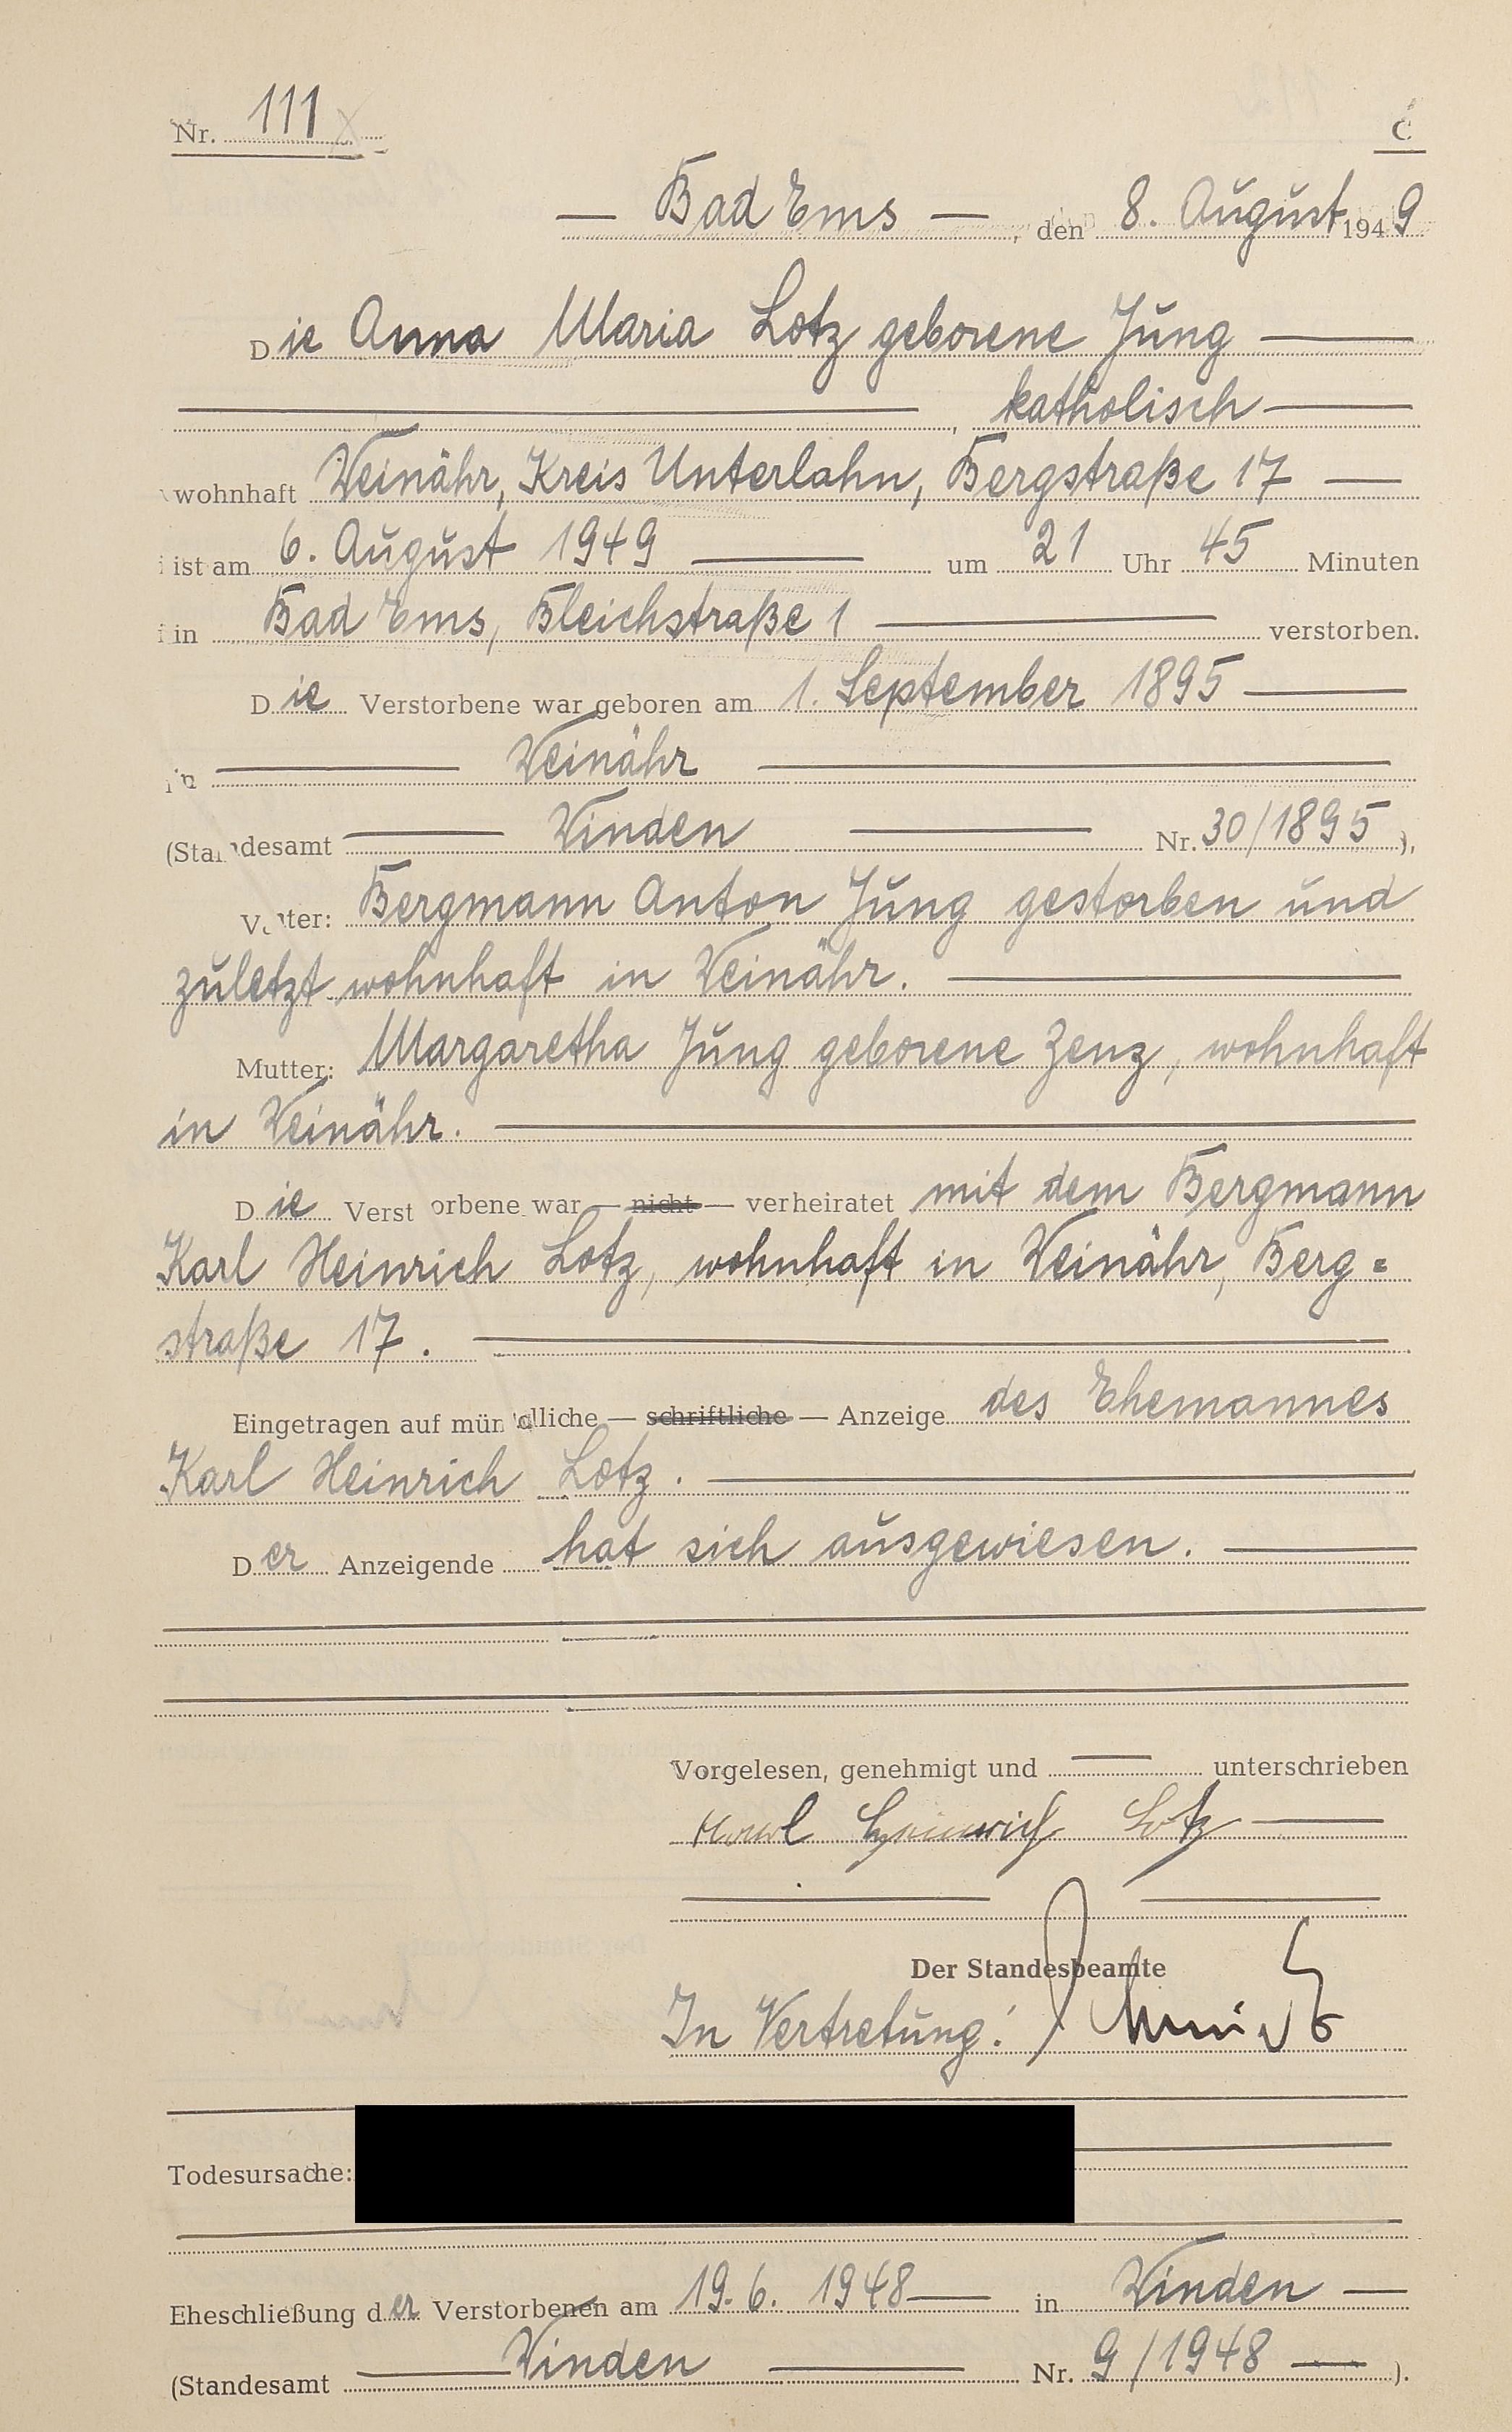 Nr. 111
C
— Bad Ems —, den 8. August 1949
Die Anna Maria Lotz geborene Jung —
—, katholisch —
wohnhaft Weinähr, Kreis Unterlahn, Bergstraße 17 —
ist am 6. August 1949 — um 21 Uhr 45 Minuten
in Bad Ems, Bleichstraße 1 — verstorben.
Die Verstorbene war geboren am 1. September 1895 —
in — Weinähr —
(Standesamt — Winden — Nr. 30/1895),
Vater: Bergmann Anton Jung gestorben und
zuletzt wohnhaft in Weinähr. —
Mutter: Margaretha Jung geborene Zenz, wohnhaft
in Weinähr. —
Die Verstorbene war — nicht — verheiratet mit dem Bergmann
Karl Heinrich Lotz, wohnhaft in Weinähr, Berg=
straße 17. —
Eingetragen auf mündliche — schriftliche — Anzeige des Ehemannes
Karl Heinrich Lotz. —
Der Anzeigende hat sich ausgewiesen. —
Vorgelesen, genehmigt und — unterschrieben
Karl Heinrich Lotz —
Der Standesbeamte
In Vertretung:
Todesursache:
Eheschließung der Verstorbenen am 19.6. 1948 — in Winden —
(Standesamt — Winden — Nr. 9/1948 —).